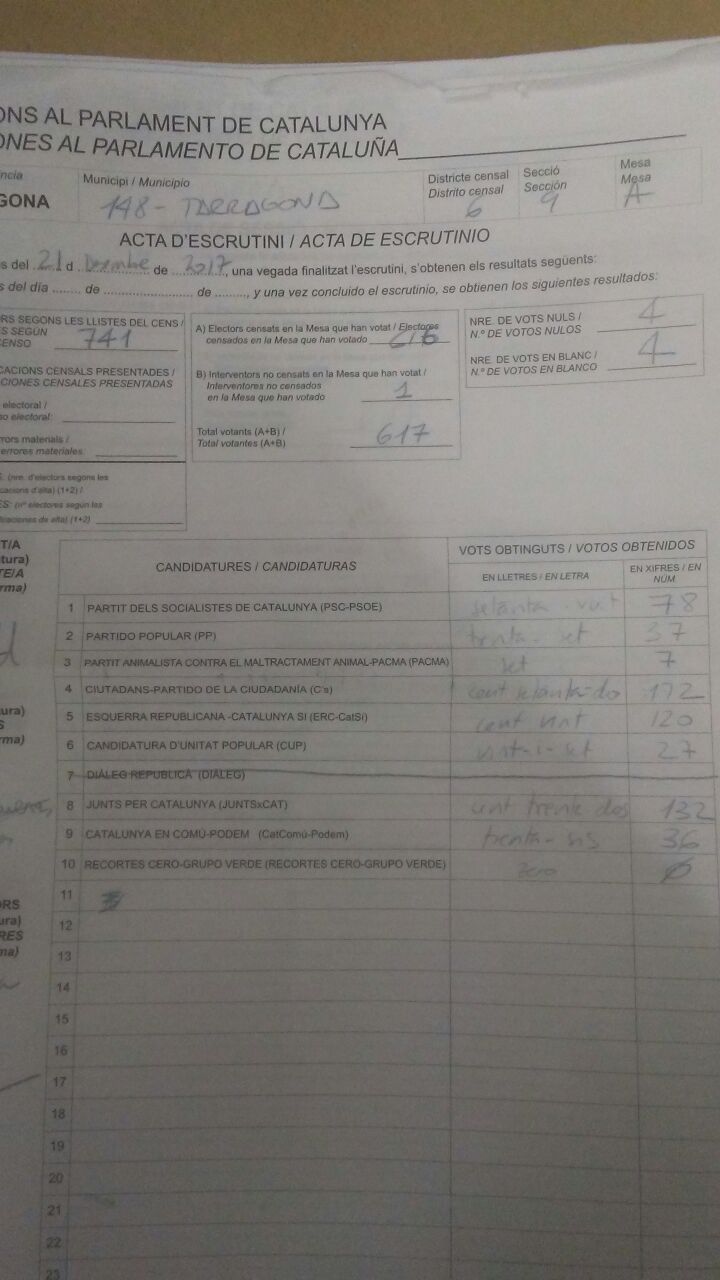 ONS AL PARLAMENT DE CATALUNYA
ONES AL PARLAMENTO DE CATALUÑA
ncia
GONA
Municipi / Municipio
148- TARRAGONA
Districte censal
Distrito censal
6
Secció
Sección
9
Mesa
Mesa
A
ACTA D'ESCRUTINI / ACTA DE ESCRUTINIO
s del 21 d Desembre de 2017, una vegada finalitzat l'escrutini, s'obtenen els resultats següents:
s del día ........ de ........................ de ........., y una vez concluido el escrutinio, se obtienen los siguientes resultados:
RS SEGONS LES LLISTES DEL CENS /
S SEGÚN
ENSO
741
CACIONS CENSALS PRESENTADES /
CIONES CENSALES PRESENTADAS
electoral /
o electoral:
rrors materials /
errores materiales:
S: (nre. d'electors segons les
icacions d'alta) (1+2) /
ES: (nº electores según las
ificaciones de alta) (1+2)
A) Electors censats en la Mesa que han votat / Electores
censados en la Mesa que han votado 616
B) Interventors no censats en la Mesa que han votat /
Interventores no censados
en la Mesa que han votado 1
Total votants (A+B) /
Total votantes (A+B) 617
NRE. DE VOTS NULS /
N.º DE VOTOS NULOS 4
NRE. DE VOTS EN BLANC /
N.º DE VOTOS EN BLANCO 4
T/A
tura)
TE/A
rma)
ura)
S
rma)
ORS
ura)
RES
ma)
CANDIDATURES / CANDIDATURAS
VOTS OBTINGUTS / VOTOS OBTENIDOS
EN LLETRES / EN LETRA
EN XIFRES / EN NÚM.
1 PARTIT DELS SOCIALISTES DE CATALUNYA (PSC-PSOE) setanta-vuit 78
2 PARTIDO POPULAR (PP) trenta-set 37
3 PARTIT ANIMALISTA CONTRA EL MALTRACTAMENT ANIMAL-PACMA (PACMA) set 7
4 CIUTADANS-PARTIDO DE LA CIUDADANÍA (C's) cent setanta-dos 172
5 ESQUERRA REPUBLICANA -CATALUNYA SI (ERC-CatSí) cent vint 120
6 CANDIDATURA D'UNITAT POPULAR (CUP) vint-i-set 27
7 DIÀLEG REPUBLICÀ (DIÀLEG)
8 JUNTS PER CATALUNYA (JUNTSxCAT) cent trenta dos 132
9 CATALUNYA EN COMÚ-PODEM (CatComú-Podem) trenta-sis 36
10 RECORTES CERO-GRUPO VERDE (RECORTES CERO-GRUPO VERDE) zero 0
11
12
13
14
15
16
17
18
19
20
21
22
23